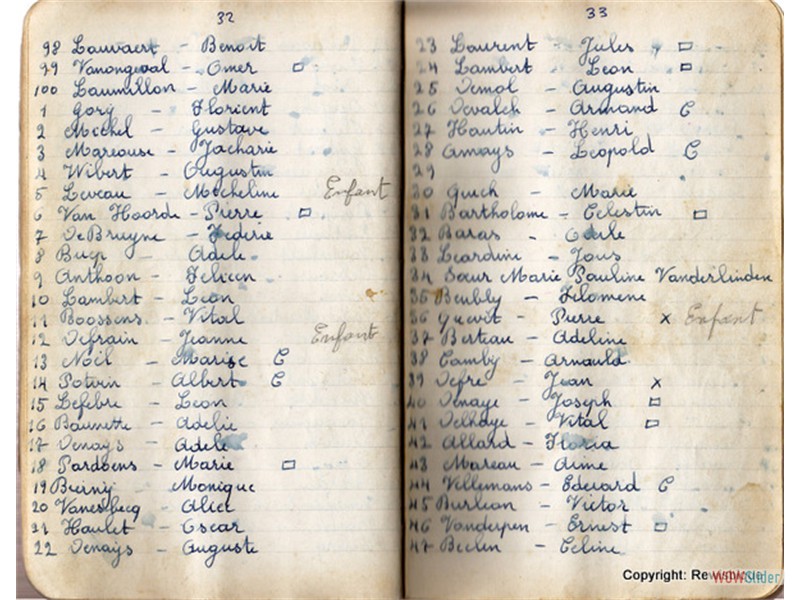 32
98 Lauwaert - Benoit
99 Vanongeval - Omer □
100 Laumillon - Marie
1 Gory - Florient
2 Michel - Gustave
3 Mareouse - Zacharie
4 Wibert - Augustin
5 Leveau - Micheline Enfant
6 Van Hoorde - Pierre □
7 De Bruyne - Federie
8 Buyp - Adele
9 Anthoon - Felicen
10 Lambert - Leon
11 Boossens - Vital
12 Defrain - Jeanne Enfant
13 Noël - Marise C
14 Potvin - Albert C
15 Lefebre - Leon
16 Baunette - Adelie
17 Denays - Adele
18 Pardoens - Marie □
19 Monique
20 - Alice
21 Haulet - Oscar
22 Denaÿs - Auguste
33
23 Laurent - Jules □
24 Lambert - Leon □
25 Demol - Augustin
26 Devalck - Armand C
27 Hautin - Henri
28 Amays - Leopold C
29
30 Guich - Marie
31 Bartholome - Celestin □
32 Baras -
33 Leardini - Jous
34 Sœur Marie Pauline Vanderlinden
35 Beubly - Filomene
36 Quevit - Pierre x Enfant
37 Berteau - Adeline
38 Camby - Arnauld
39 Defre - Jean x
40 Denaye - Joseph □
41 Delhaye - Vital □
42 Allard - Floria
43 Mareau - Aime
44 Villemans - Edouard C
45 Burleon - Victor
46 Vanderpen - Ernest □
47 Beclen - Celine
Copyright:
WOWSlider